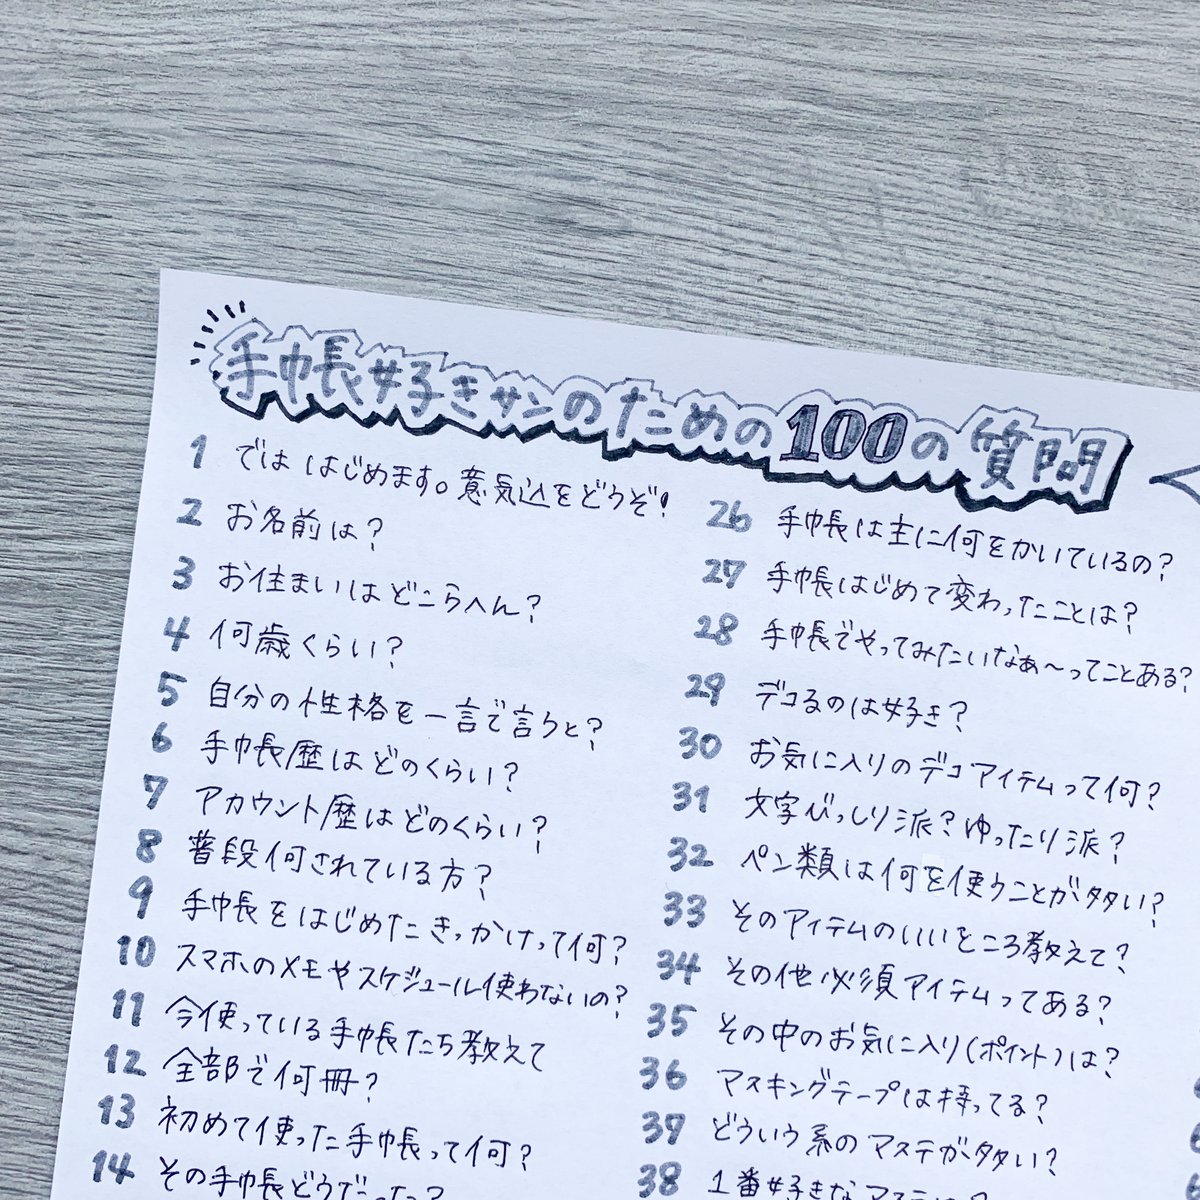 手帳好きサンのための100の質問
1 では はじめます。意気込をどうぞ!
2 お名前は?
3 お住まいはどこらへん?
4 何歳くらい?
5 自分の性格を一言で言うと?
6 手帳歴はどのくらい?
7 アカウント歴はどのくらい?
8 普段何されている方?
9 手帳をはじめたきっかけって何?
10 スマホのメモやスケジュール使わないの?
11 今使っている手帳たち教えて
12 全部で何冊?
13 初めて使った手帳って何?
14 その手帳どうだった?
26 手帳は主に何をかいているの?
27 手帳はじめて変わったことは?
28 手帳でやってみたいなぁ〜ってことある?
29 デコるのは好き?
30 お気に入りのデコアイテムって何?
31 文字びっしり派?ゆったり派?
32 ペン類は何を使うことが多い?
33 そのアイテムのいいところ教えて?
34 その他必須アイテムってある?
35 その中のお気に入り(ポイント)は?
36 マスキングテープは持ってる?
37 どういう系のマステが多い?
38 1番好きなマステは?